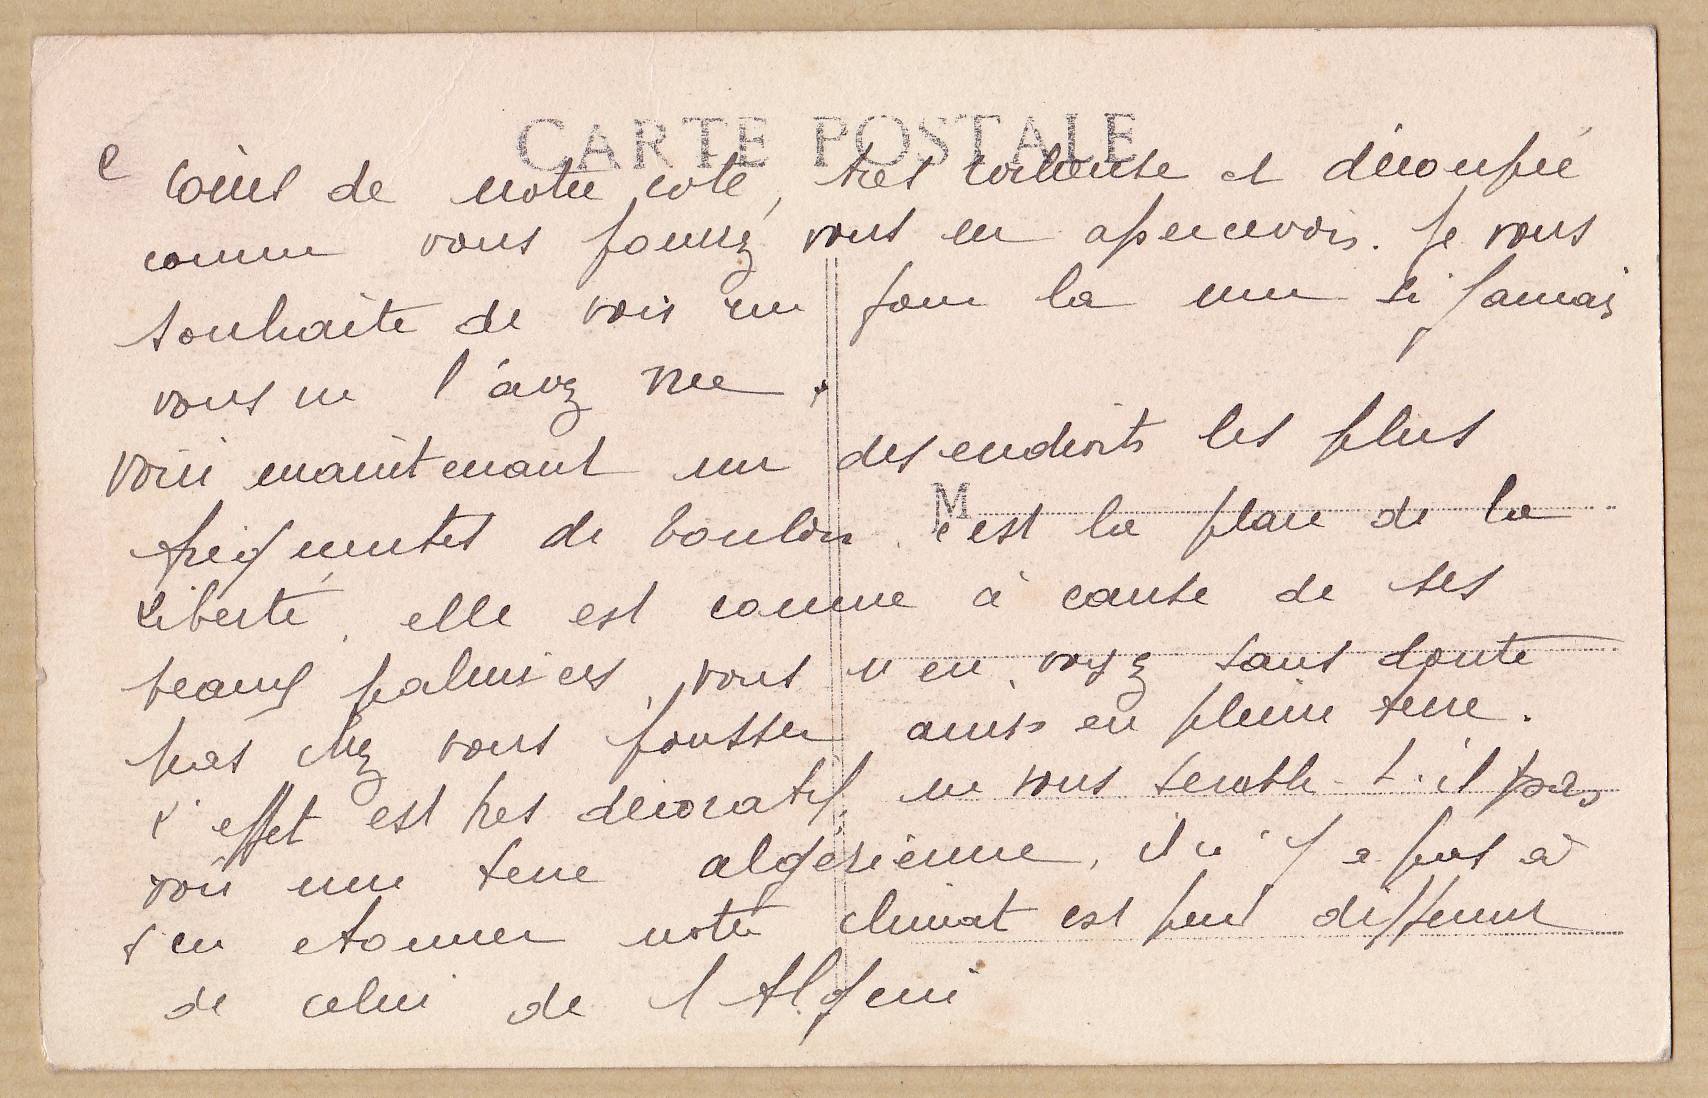 CARTE POSTALE
e
Coins de notre cote, très rocheuse et découpée
comme vous pourrez vous en apercevoir. Je vous
souhaite de voir un jour la mer si jamais
vous ne l'avez vue.
Voici maintenant un des endroits les plus
fréquentés de Toulon, c'est la place de la
M
Liberté, elle est connue à cause de ses
beaux palmiers, vous n'en voyez sans doute
pas chez vous pousser ainsi en pleine terre.
L'effet est très décoratif, ne vous semble-t-il pas
voir une terre algérienne, il n'y a pas à
s'en etonner notre climat est peu différent
de celui de l'Algérie